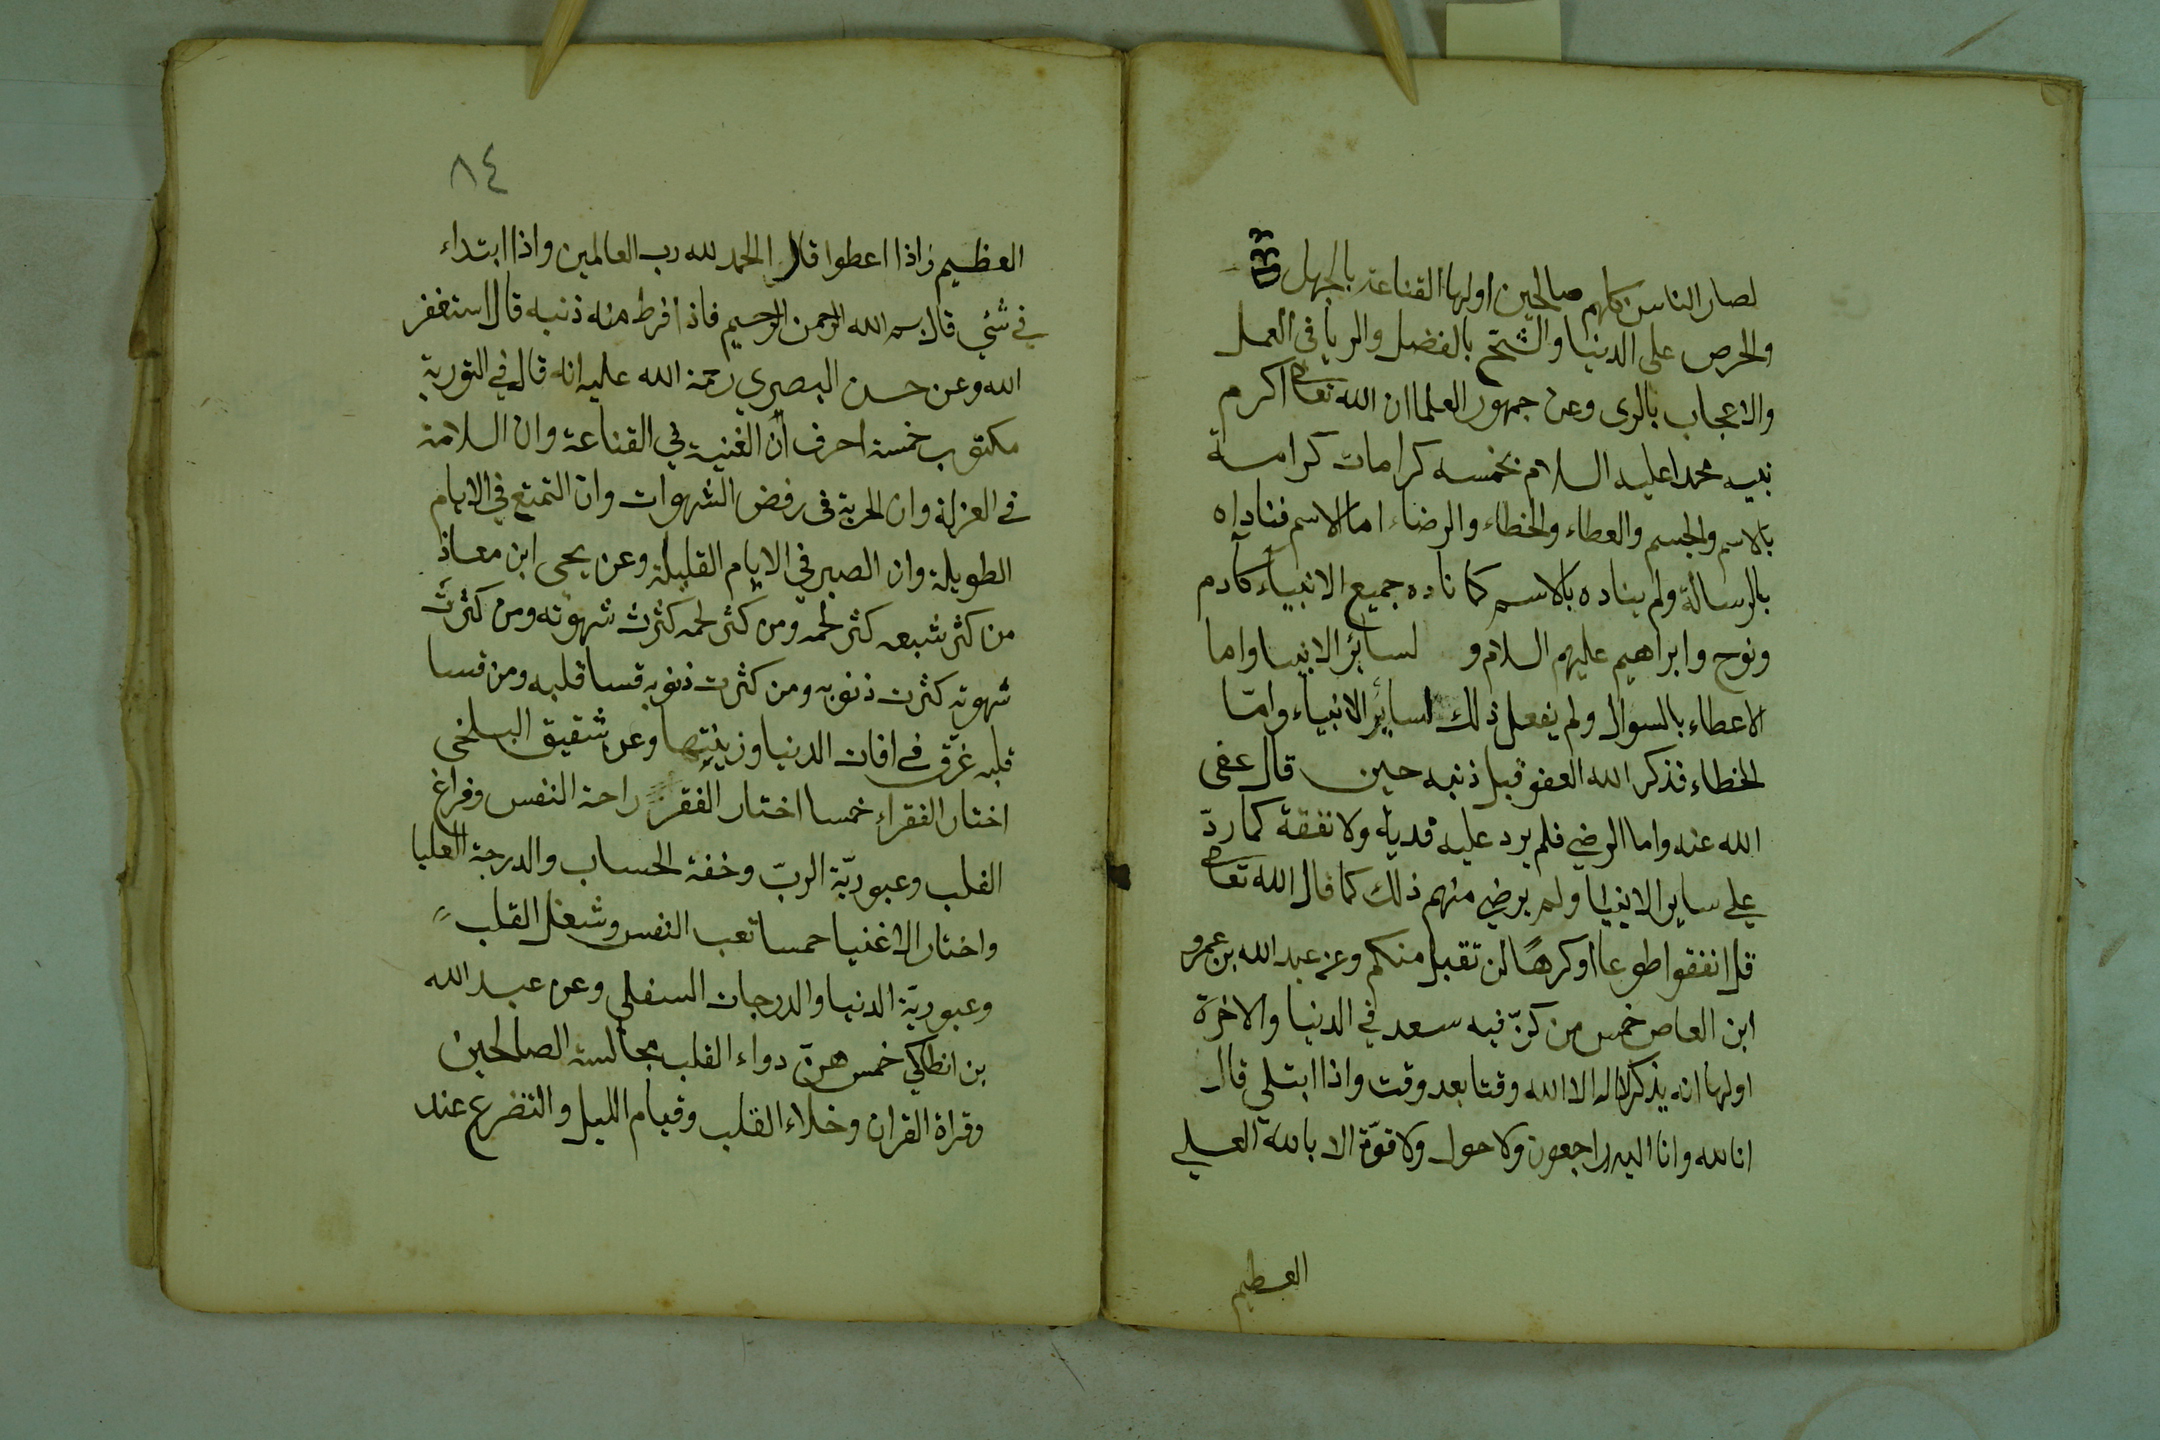 لصار الناس كلهم صالحين اولها القناعة بالجهل
والحرص على الدنيا والشح بالفضل والريا في العمل
والاعجاب بالرى وعن جمهور العلما ان الله تعالى اكرم
نبيه محمدا عليه السلام بخمسه كرامات كرامية
بالاسم والجسم والعطاء والخطاء والرضاء اما الاسم فناداه
بالرسالة ولم يناده بالاسم كما ناده جميع الانبياء كآدم
ونوح وابراهيم عليهم السلام و لسائر الانبيا واما
الاعطاء بالسوال ولم يفعل ذلك لساير الانبياء وامّا
الخطاء فذكر الله العفو قبل ذنبه حين قال عفى
الله عنه واما الرضي فلم يرد عليه فدية ولا نفقة كما ردّ
على ساير الانبيا ولم يرضي منهم ذلك كما قال الله تعالى
قل انفقوا طوعا اوكرهًا لن تقبل منكم وعن عبد الله بن عمرو
ابن العاص خمس من كنّ فيه سعد في الدنيا والاخرة
اولها انه يذكر لا اله الا الله وقتا بعد وقت واذا ابتلي قال
انا لله وانا اليه راجعون ولا حول ولا قوّة الا بالله العلي
العظيم
٨٤
العظيم واذا اعطوا قال الحمد لله رب العالمين واذا ابتداء
في شئي قال بسم الله الرحمن الرحيم فاذا افرط منه ذنبه قال استغفر
الله وعن حسن البصري رحمة الله عليه انه قال في التورية
مكتوب خمسة احرف أن الغنية في القناعة وان السلامة
في العزلة وان الحرية في رفض الشهوات وان التمتع في الايام
الطويلة وان الصبر في الايام القليلة وعن يحى ابن معاذ
من كثر شبعه كثر لحمه ومن كثر لحمه كثرت شهوته ومن كثرت
شهوته كثرت ذنوبه ومن كثرت ذنوبه قسا قلبه ومن قسا
قلبه غرق في افات الدنيا وزينتها وعن شقيق البلخى
اختار الفقراء خمسا اختار الفقر راحة النفس وفراغ
القلب وعبوديّة الربّ وخفة الحساب والدرجة العليا
واختار الاغنيا حمسا تعب النفس وشغل القلب
وعبوديّة الدنيا والدرجات السفلى وعن عبد الله
بن انطاكي خمس هنّ دواء القلب مجالسة الصالحين
وقراة القران وخلاء القلب وقيام الليل والتضرع عند